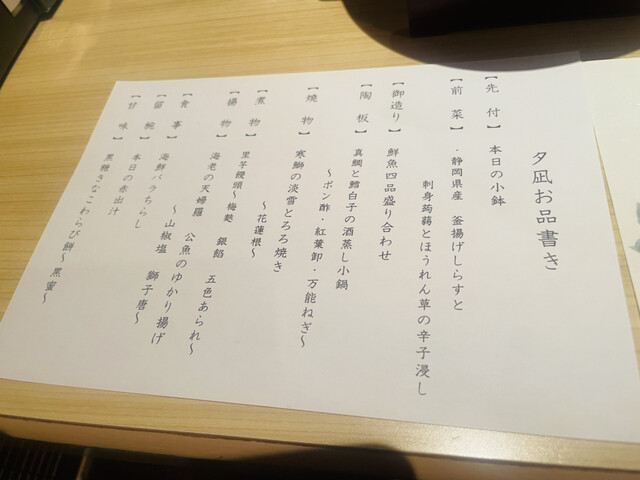 夕凪お品書き
【先 付】 本日の小鉢
【前 菜】 ・静岡県産 釜揚げしらすと
刺身蒟蒻とほうれん草の辛子浸し
【御造り】 鮮魚四品盛り合わせ
【陶 板】 真鯛と鱈白子の酒蒸し小鍋
～ポン酢・紅葉卸・万能ねぎ～
【焼 物】 寒鰤の淡雪とろろ焼き
～花蓮根～
【煮 物】 里芋饅頭～梅麩 銀餡 五色あられ～
【揚 物】 海老の天婦羅 公魚のゆかり揚げ
～山椒塩 獅子唐～
【食 事】 海鮮バラちらし
【留 椀】 本日の赤出汁
【甘 味】 黒糖きなこわらび餅～黒蜜～